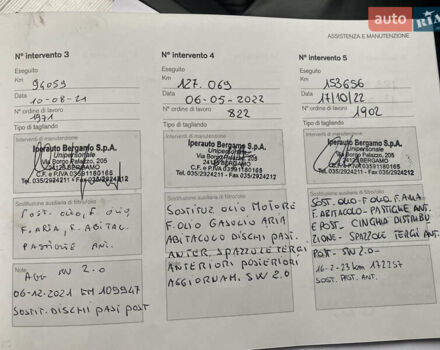 auto RIA
ASSISTENZA E MANUTENZIONE
N° intervento 3
Eseguito
Km
94059
Data
10-08-21
N° ordine di lavoro
1971
Tipo di tagliando
Interventi di manutenzione
Iperauto Bergamo S.p.A.
Unipersonale
Via Borgo Palazzo, 205
24125 BERGAMO
C.F. e P.IVA 03691180165
Tel. 035/2924211 - Fax 035/2924212
Sostituzione ausiliaria di filtro/olio
SOST. OLIO, F. OLIO,
F. ARIA, F. ABITAC.
PASTIGLIE ANT.
Note
AGG SW 2.0
06-12.2021 KM 109947
SOSTIT. DISCHI PAST POST
N° intervento 4
Eseguito
Km
127.069
Data
06-05-2022
N° ordine di lavoro
822
Tipo di tagliando
Interventi di manutenzione
Iperauto Bergamo S.p.A.
Unipersonale
Via Borgo Palazzo, 205
24125 BERGAMO
C.F. e P.IVA 03691180165
Tel. 035/2924211 - Fax 035/2924212
Sostituzione ausiliaria di filtro/olio
SOSTITUZ OLIO MOTORE
F. OLIO GASOLIO ARIA
ABITACOLO DISCHI PAST.
ANTER. SPAZZOLE TERGI
ANTERIORI POSTERIORI
AGGIORNAM. SW 2.0
N° intervento 5
Eseguito
Km
153656
Data
17/10/22
N° ordine di lavoro
1902
Tipo di tagliando
Interventi di manutenzione
Iperauto Bergamo S.p.A.
Unipersonale
Via Borgo Palazzo, 205
24125 BERGAMO
C.F. e P.IVA 03691180165
Tel. 035/2924211 - Fax 035/2924212
Sostituzione ausiliaria di filtro/olio
SOST. OLIO - F. OLIO F. ARIA
F. ABITACOLO - PASTIGLIE ANT.
E POST - CINGHIA DISTRIBU
ZIONE - SPAZZOLE TERGI ANT.
POST - SW 2.0 -
16-2-23 km 172257
SOST. PAST. ANT.